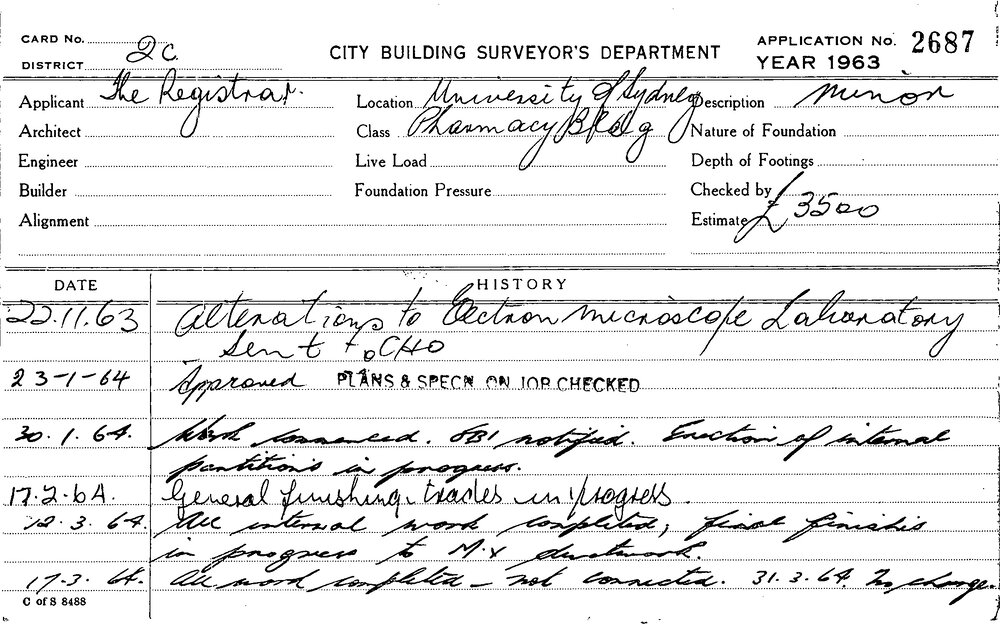 CARD No. 2c. CITY BUILDING SURVEYOR'S DEPARTMENT APPLICATION No. 2687
DISTRICT YEAR 1963
Applicant The Registrar. Location University of Sydney Description Minor
Architect Class Pharmacy Bldg Nature of Foundation
Engineer Live Load Depth of Footings
Builder Foundation Pressure Checked by
Alignment Estimate £3500
DATE HISTORY
22.11.63 Alterations to Electron microscope Laboratory
– Sent to CHO
23-1-64 Approved PLANS & SPECN ON JOB CHECKED
30.1.64. Work commenced. notified. Erection of internal
partitions in progress.
17.2.64. General finishing trades in progress.
12.3.64. All internal work completed, final finishes
in progress to ductwork.
17.3.64. All work completed – not connected. 31.3.64. No change.
C of S 8488